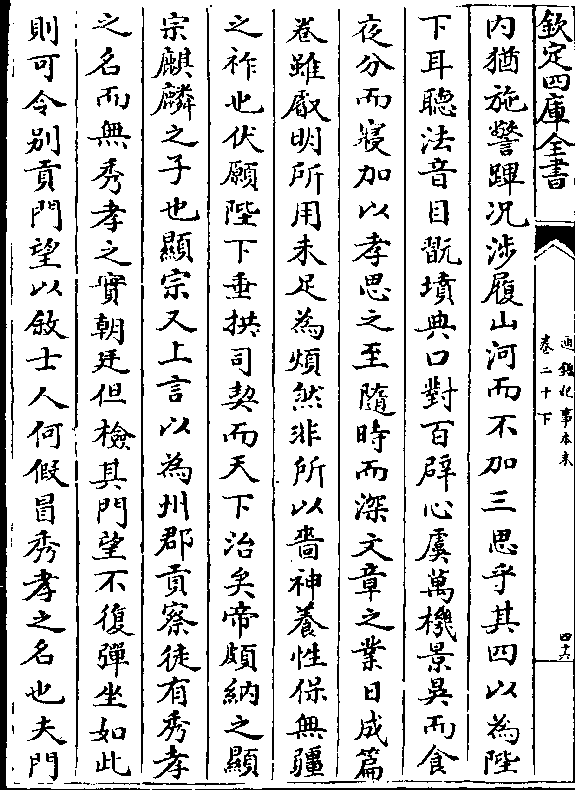 欽定四庫全書
通鑑紀事本末
卷二十下
四十六
内猶施警蹕况涉履山河而不加三思乎其四以為陛
下耳聽法音目翫墳典口對百辟心虞萬機景昃而食
夜分而寢加以孝思之至隨時而深文章之業日成篇
卷雖叡明所用未足為煩然非所以嗇神養性保無疆
之祚也伏願陛下垂拱司契而天下治矣帝頗納之顯
宗麒麟之子也顯宗又上言以為州郡貢察徒有秀孝
之名而無秀孝之實朝廷但檢其門望不復彈坐如此
則可令别貢門望以敘士人何假冒秀孝之名也夫門